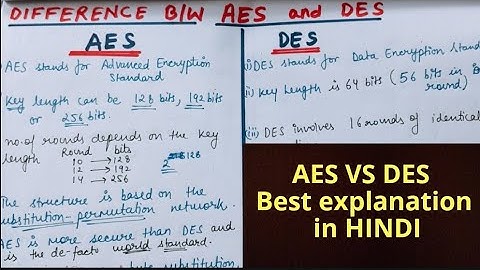 DIFFERENCE B/W AES and DES
AES
AES stands for Advanced Encryption
Standard
Key length can be 128 bits, 192 bits
or 256 bits.
no. of rounds depends on the key
length Round bits
10 → 128
12 → 192
14 → 256
The structure is based on the
substitution-permutation network.
AES is more secure than DES and
is the de-facto world standard.
substitution
DES
(i) DES stands for Data Encryption
(ii) Key Length is 64 bits (56 bits in
round)
(iii) DES involves 16 rounds of identical
AES VS DES
Best explanation
in HINDI